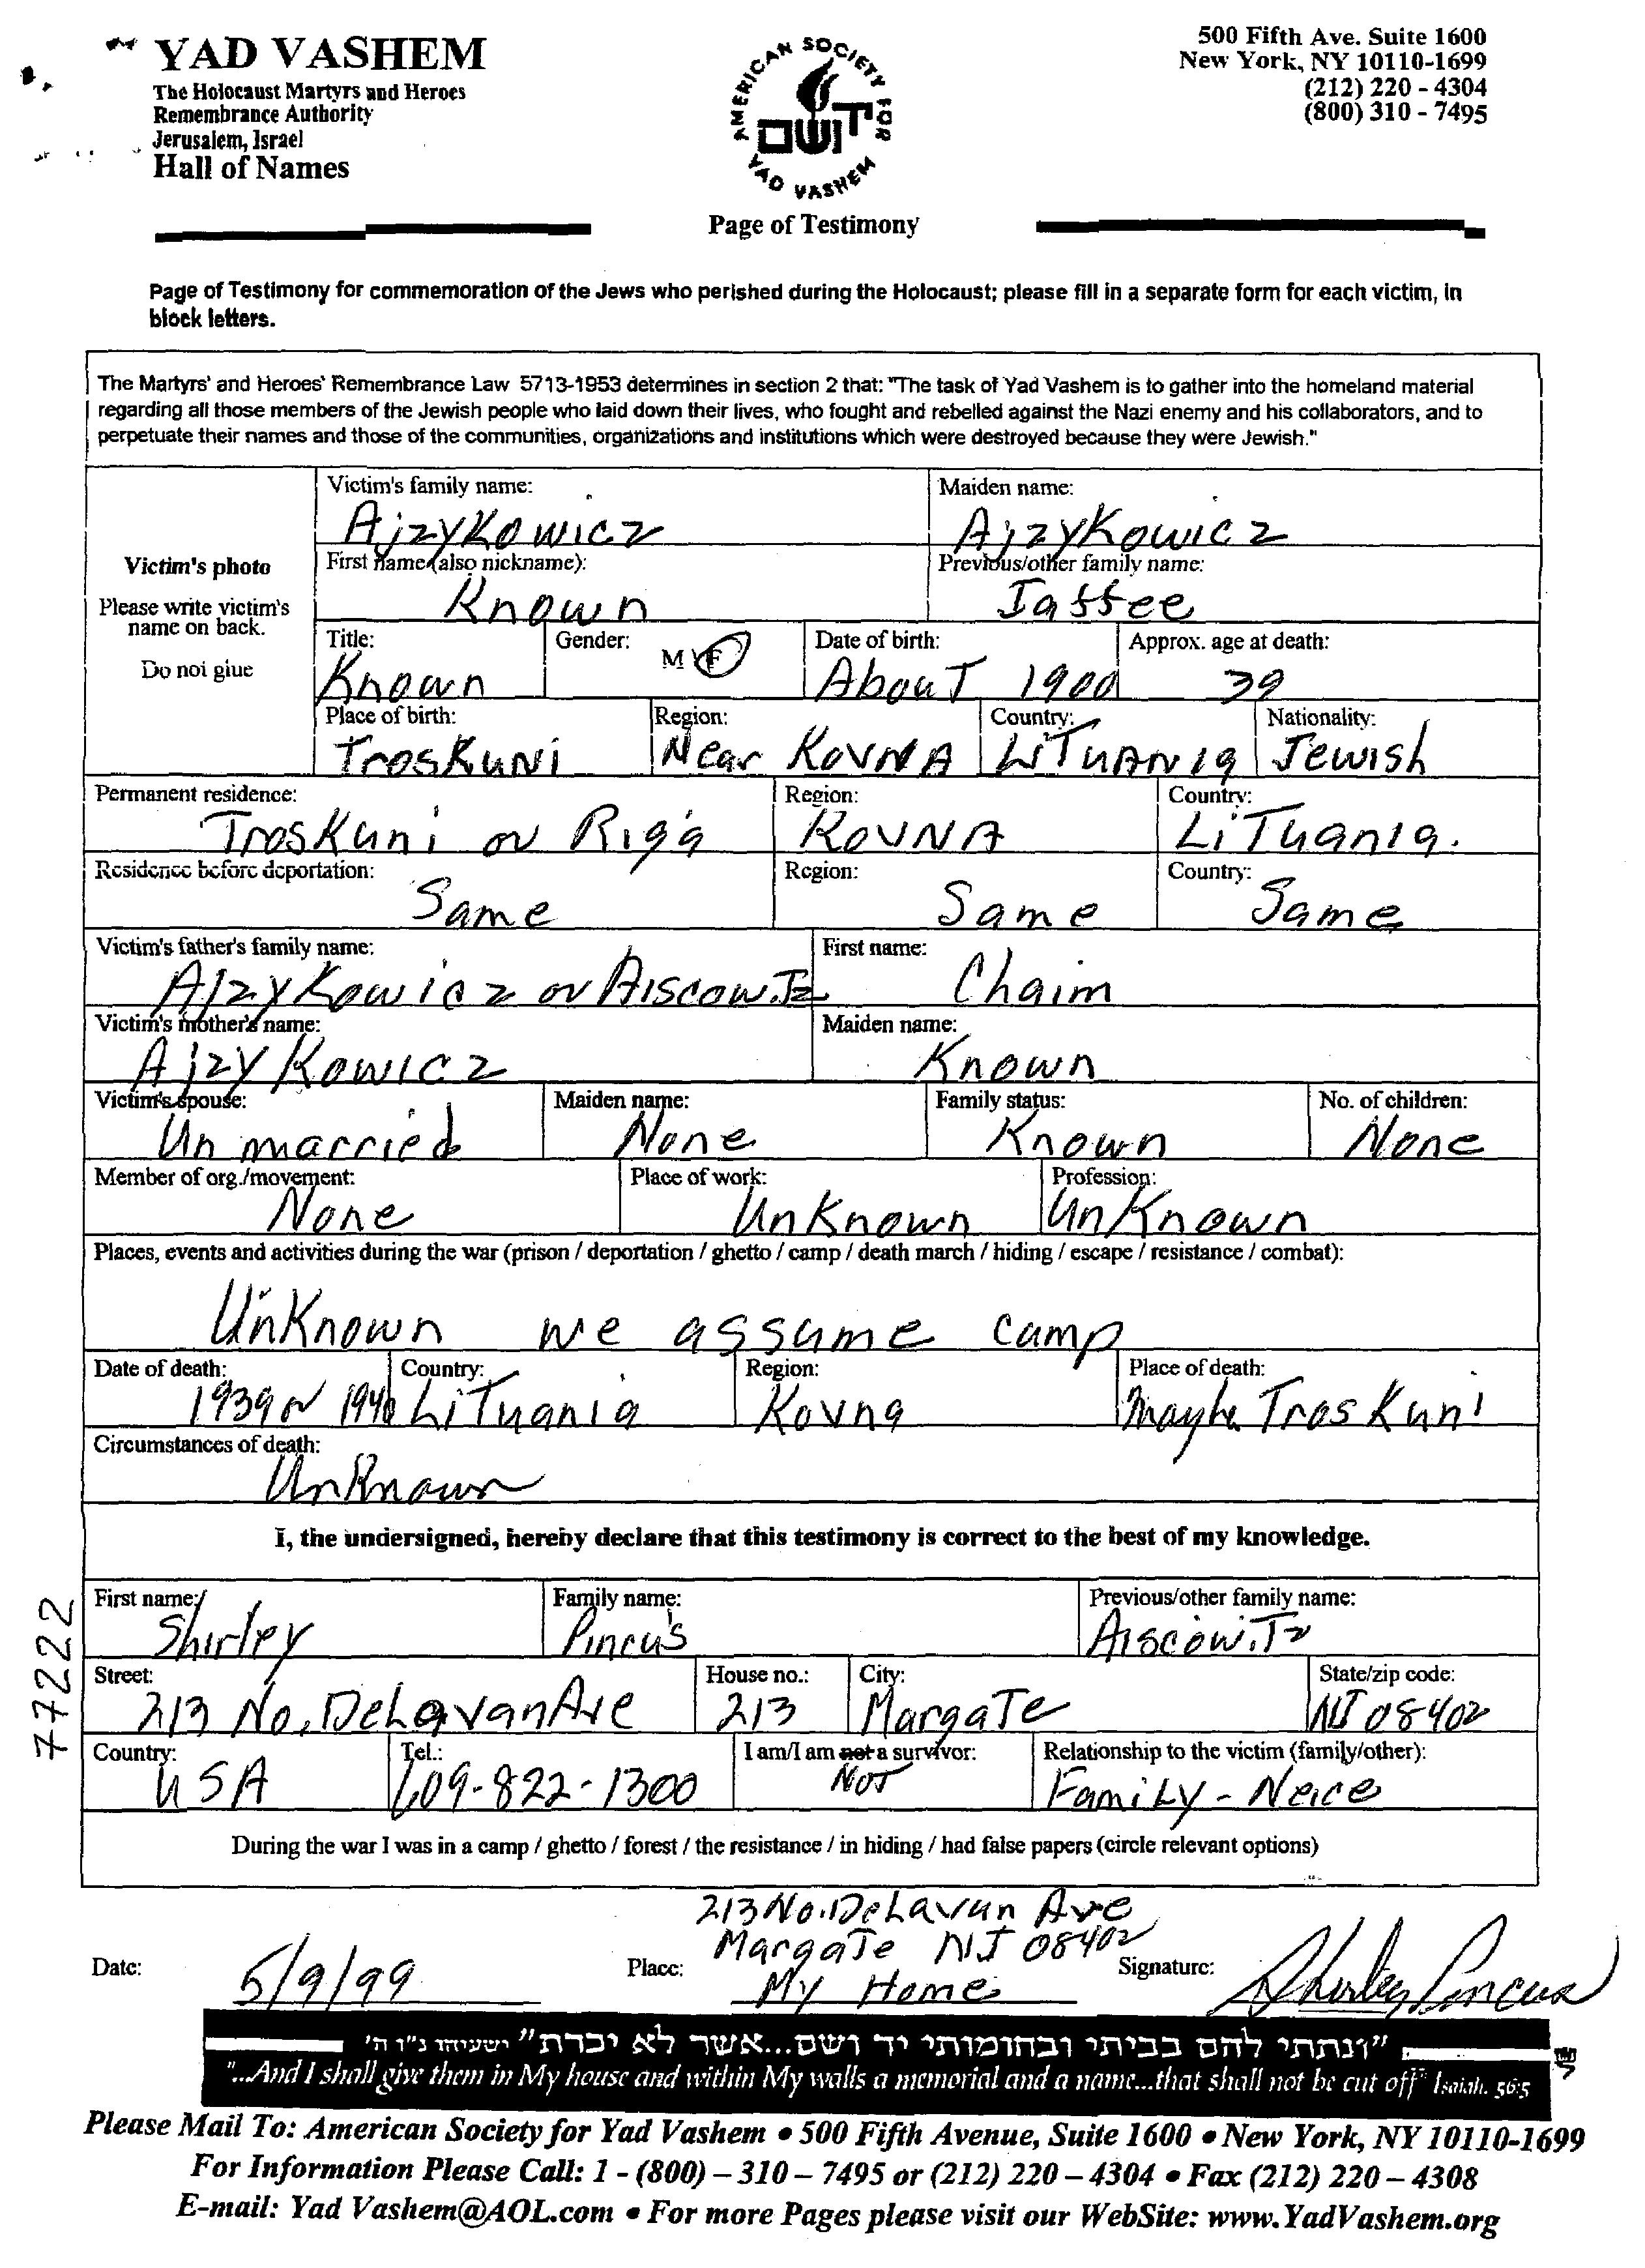 YAD VASHEM
The Holocaust Martyrs and Heroes
Remembrance Authority
Jerusalem, Israel
Hall of Names
AMERICAN SOCIETY FOR
יד ושם
YAD VASHEM
Page of Testimony
500 Fifth Ave. Suite 1600
New York, NY 10110-1699
(212) 220 - 4304
(800) 310 - 7495
Page of Testimony for commemoration of the Jews who perished during the Holocaust; please fill in a separate form for each victim, in
block letters.
The Martyrs' and Heroes' Remembrance Law 5713-1953 determines in section 2 that: "The task of Yad Vashem is to gather into the homeland material
regarding all those members of the Jewish people who laid down their lives, who fought and rebelled against the Nazi enemy and his collaborators, and to
perpetuate their names and those of the communities, organizations and institutions which were destroyed because they were Jewish."
Victim's photo
Please write victim's
name on back.
Do not glue
Victim's family name: Maiden name:
AjzyKowicz AjzyKowicz
First name (also nickname): Previous/other family name:
Known Jaffee
Title: Gender: M F Date of birth: Approx. age at death:
Known About 1900 39
Place of birth: Region: Country: Nationality:
TrosKuNi Near KovNA LiTuANia Jewish
Permanent residence: Region: Country:
TrosKuni or Riga KovNA LiTuania.
Residence before deportation: Region: Country:
Same Same Same
Victim's father's family name: First name:
AjzyKowicz or AiscowiTz Chaim
Victim's mother's name: Maiden name:
AjzyKowicz Known
Victim's spouse: Maiden name: Family status: No. of children:
Un married None Known None
Member of org./movement: Place of work: Profession:
None UnKnown UnKnown
Places, events and activities during the war (prison / deportation / ghetto / camp / death march / hiding / escape / resistance / combat):
UnKnown we assume camp
Date of death: Country: Region: Place of death:
1939 or 1940 LiTuania Kovna Maybe TrosKuni
Circumstances of death:
UnKnown
I, the undersigned, hereby declare that this testimony is correct to the best of my knowledge.
First name: Family name: Previous/other family name:
Shirley Pincus AiscowiTz
Street: House no.: City: State/zip code:
213 No. DeLavan Ave 213 MargaTe NJ 08402
Country: Tel.: I am/I am not a survivor: Relationship to the victim (family/other):
USA 609-822-1300 NOT FamiLy - Neice
During the war I was in a camp / ghetto / forest / the resistance / in hiding / had false papers (circle relevant options)
77222
213 No. DeLavan Ave
MargaTe NJ 08402
Date: 5/9/99 Place: My Home Signature: Shirley Pincus
"ונתתי להם בביתי ובחומותי יד ושם...אשר לא יכרת" ישעיהו נ"ו ה'
"...And I shall give them in My house and within My walls a memorial and a name...that shall not be cut off" Isaiah. 56:5
Please Mail To: American Society for Yad Vashem • 500 Fifth Avenue, Suite 1600 • New York, NY 10110-1699
For Information Please Call: 1 - (800) – 310 – 7495 or (212) 220 – 4304 • Fax (212) 220 – 4308
E-mail: Yad Vashem@AOL.com • For more Pages please visit our WebSite: www.YadVashem.org